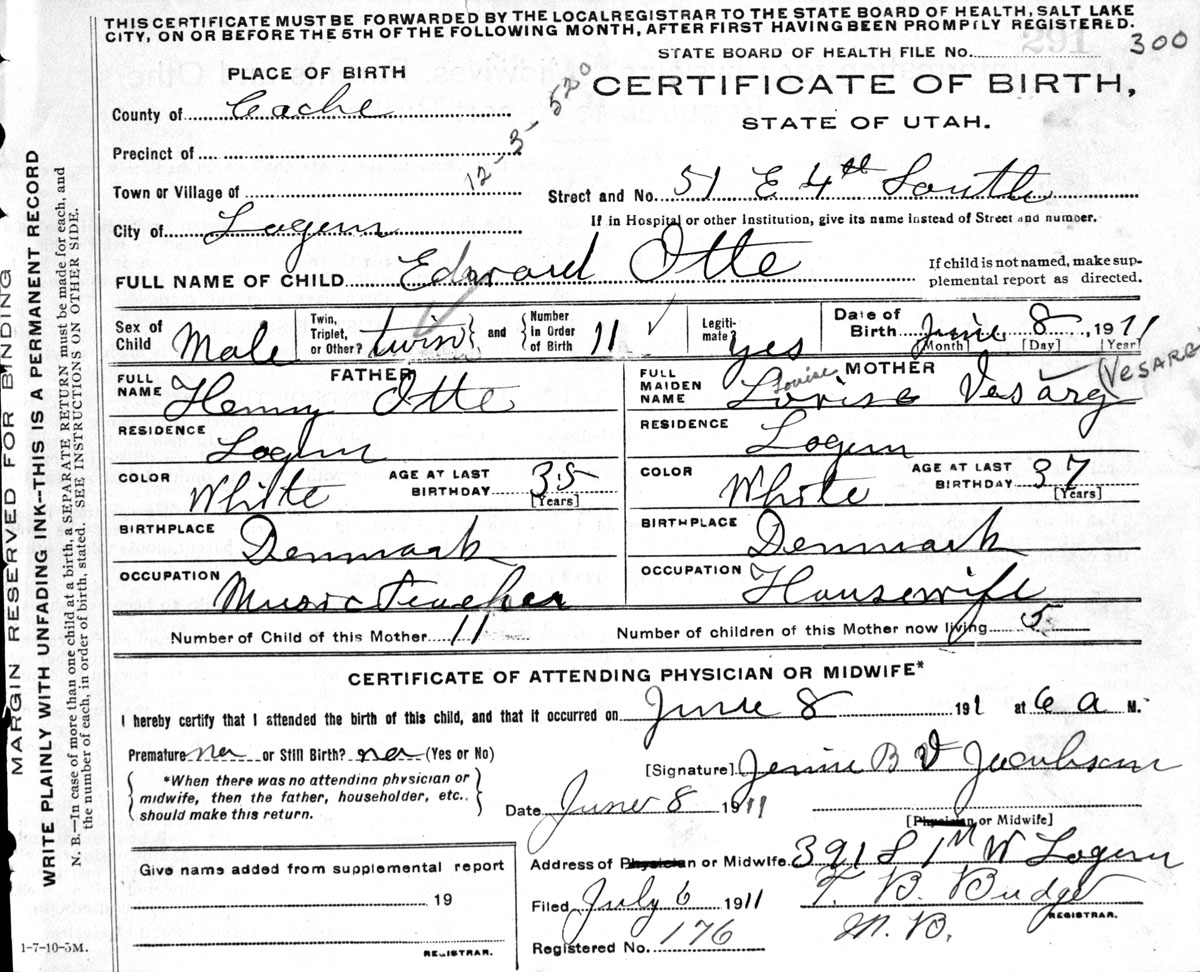 THIS CERTIFICATE MUST BE FORWARDED BY THE LOCAL REGISTRAR TO THE STATE BOARD OF HEALTH, SALT LAKE
CITY, ON OR BEFORE THE 5TH OF THE FOLLOWING MONTH, AFTER FIRST HAVING BEEN PROMPTLY REGISTERED.
STATE BOARD OF HEALTH FILE No. 291 300
PLACE OF BIRTH
CERTIFICATE OF BIRTH,
STATE OF UTAH.
County of Cache
Precinct of
12-3-520
Town or Village of
Street and No. 51 E 4th South
If in Hospital or other Institution, give its name instead of Street and number.
City of Logan
FULL NAME OF CHILD Edward Otte
If child is not named, make sup-
plemental report as directed.
Sex of Child Male
Twin, Triplet, or Other? twin and Number in Order of Birth 11
Legiti-mate? yes
Date of Birth June 8, 1911
[Month] [Day] [Year]
FATHER
FULL NAME Henry Otte
RESIDENCE Logan
COLOR White AGE AT LAST BIRTHDAY 35
[Years]
BIRTHPLACE Denmark
OCCUPATION Music teacher
MOTHER
FULL MAIDEN NAME Louise Louise Vesarg (VESARG
RESIDENCE Logan
COLOR White AGE AT LAST BIRTHDAY 37
[Years]
BIRTHPLACE Denmark
OCCUPATION Housewife
Number of Child of this Mother 11 Number of children of this Mother now living 5
CERTIFICATE OF ATTENDING PHYSICIAN OR MIDWIFE*
I hereby certify that I attended the birth of this child, and that it occurred on June 8 191 1 at 6 a M.
Premature no or Still Birth? no (Yes or No)
*When there was no attending physician or
midwife, then the father, householder, etc.,
should make this return.
[Signature] Jennie B V Jacobson
Date June 8 1911
[Physician or Midwife]
Address of Physician or Midwife 391 S 1st W Logan
Give name added from supplemental report
19
REGISTRAR.
Filed July 6 1911 T. B. Budge
REGISTRAR.
M. D.
Registered No. 176
1-7-10-3M.
MARGIN RESERVED FOR BINDING
WRITE PLAINLY WITH UNFADING INK--THIS IS A PERMANENT RECORD
N. B.—In case of more than one child at a birth, a SEPARATE RETURN must be made for each, and
the number of each, in order of birth, stated. SEE INSTRUCTION ON OTHER SIDE.